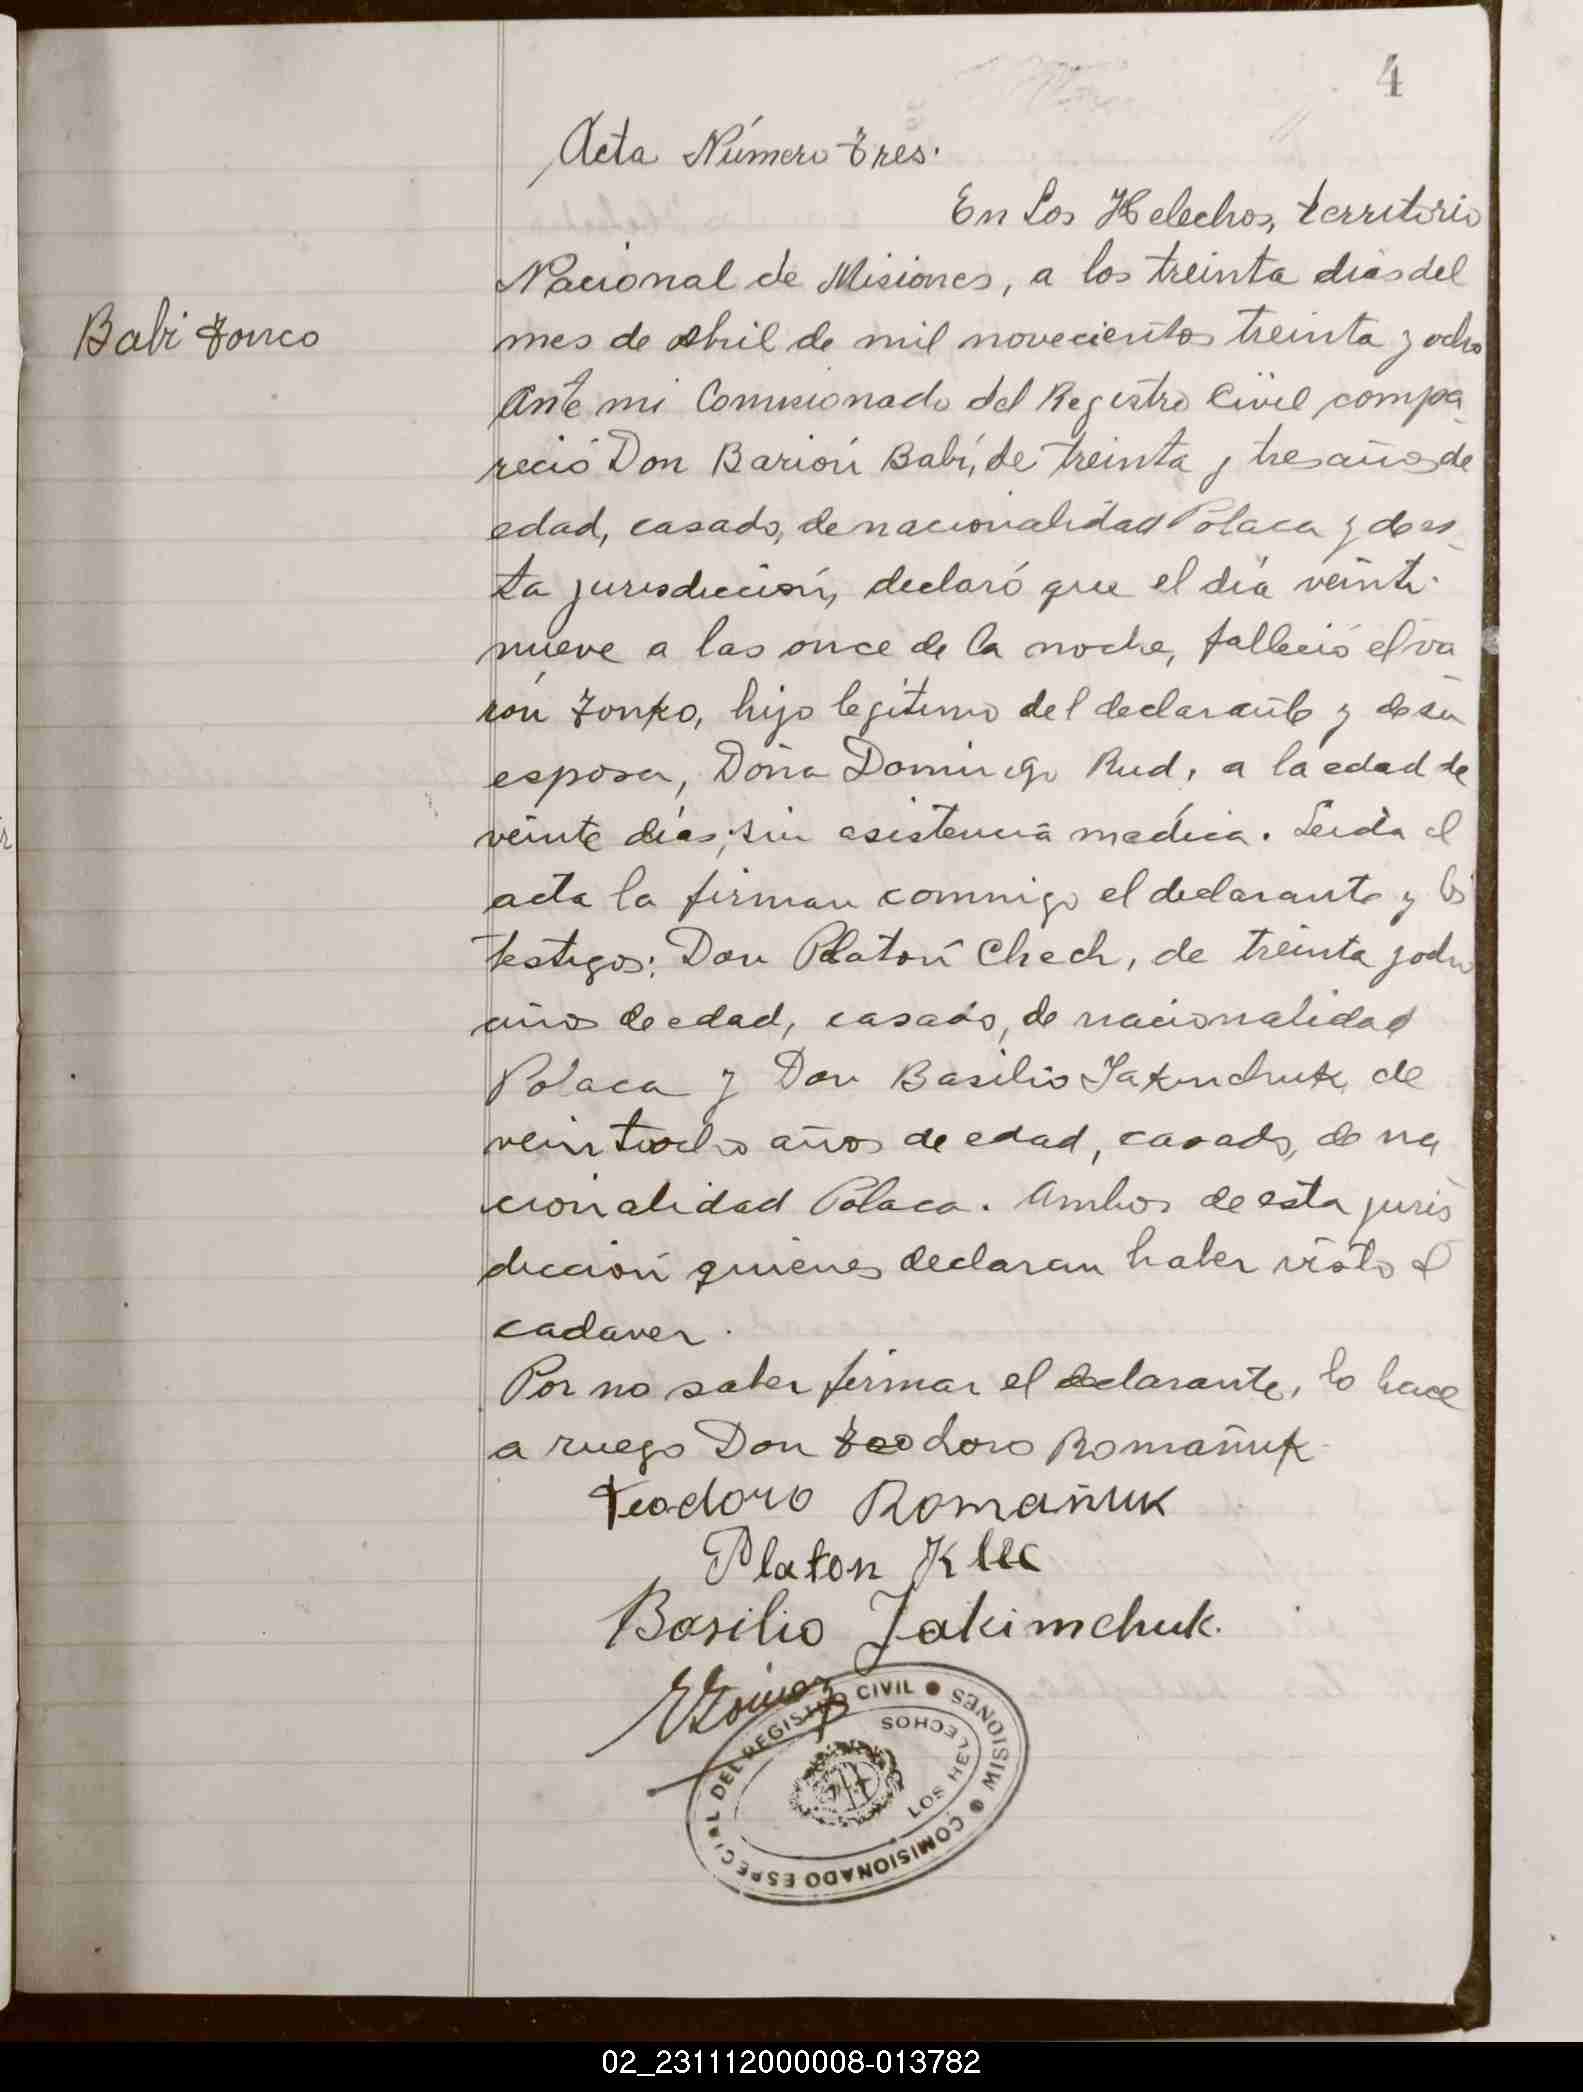 4
Acta Número tres.
En Los Helechos, territorio
Nacional de Misiones, a los treinta dias del
Babi Tonco
mes de abril de mil novecientos treinta y ocho
Ante mi Comisionado del Registro Civil compa
reció Don Barión Babí, de treinta y tres años de
edad, casado, de nacionalidad Polaca y de es
ta jurisdicción, declaró que el día veinti
nueve a las once de la noche, falleció el va
rón Tonko, hijo legítimo del declarante y de su
esposa, Doña Domingo Rud, a la edad de
veinte días, sin asistencia medica. Leida el
acta la firman conmigo el declarante y los
testigos: Don Platón Chech, de treinta y ocho
años de edad, casado, de nacionalidad
Polaca y Don Basilio Jakimchuk, de
veintiocho años de edad, casado, de na
cionalidad Polaca. Ambos de esta juris
dicción quienes declaran haber visto el
cadaver.
Por no saber firmar el declarante, lo hace
a ruego Don Teodoro Romañuk
Teodoro Romañuk
Platon
Basilio Jakimchuk.
COMISIONADO ESPECIAL DEL REGISTRO CIVIL • MISIONES •
LOS HELECHOS
02_231112000008-013782